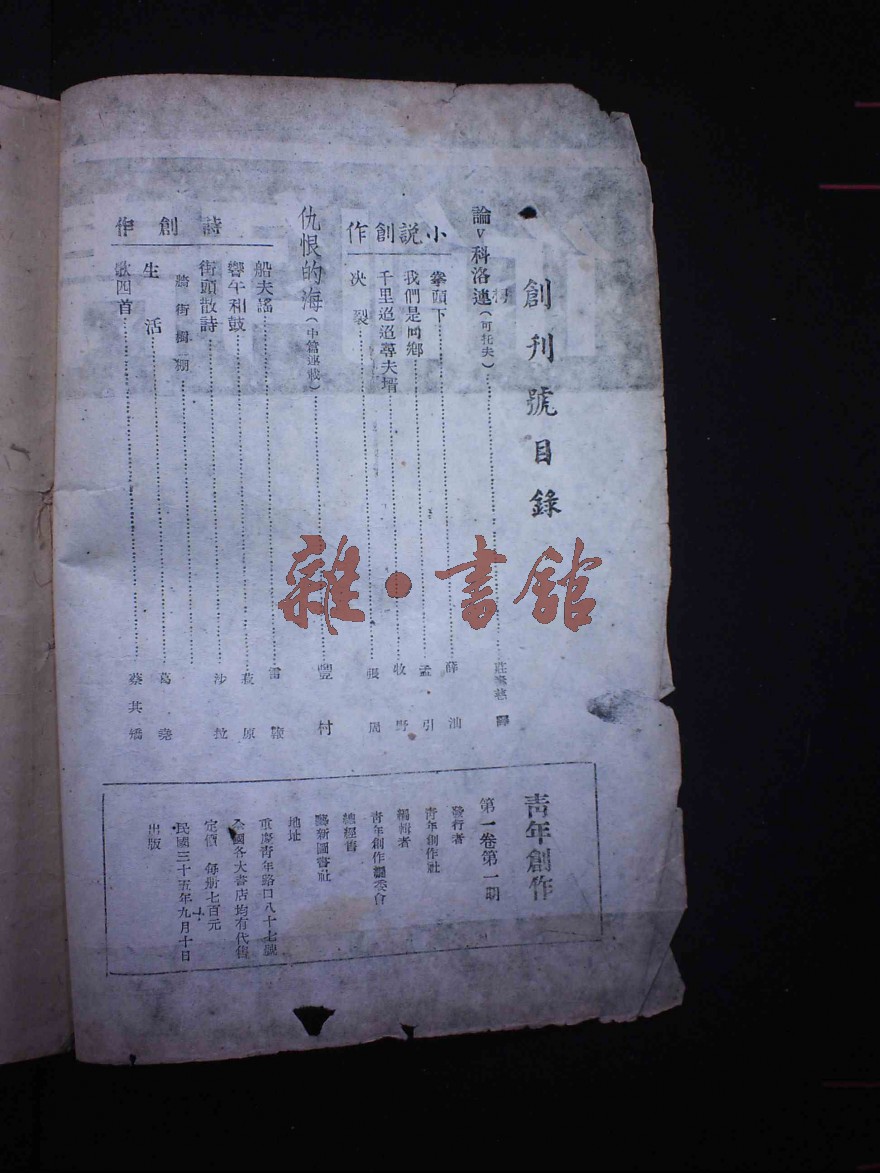 創刊號目錄
論V科洛連柯(可托夫)……莊壽慈 譯
小說創作
拳頭下……薛汕
我們是同鄉……孟引
千里迢迢尋夫壻……牧野
决裂……張周
仇恨的海(中篇連載)……豐村
詩創作
船夫謠……
響午和鼓……荻原
街頭散詩……沙拉
騎街樹棚……
生活……葛堯
歌四首……蔡其矯
青年創作
第一卷第一期
發行者
青年創作社
編輯者
青年創作編委會
總經售
藝新圖書社
地址
重慶青年路口八十七號
全國各大書店均有代售
定價 每册七百元
民國三十五年九月十日
出版
雜·書館